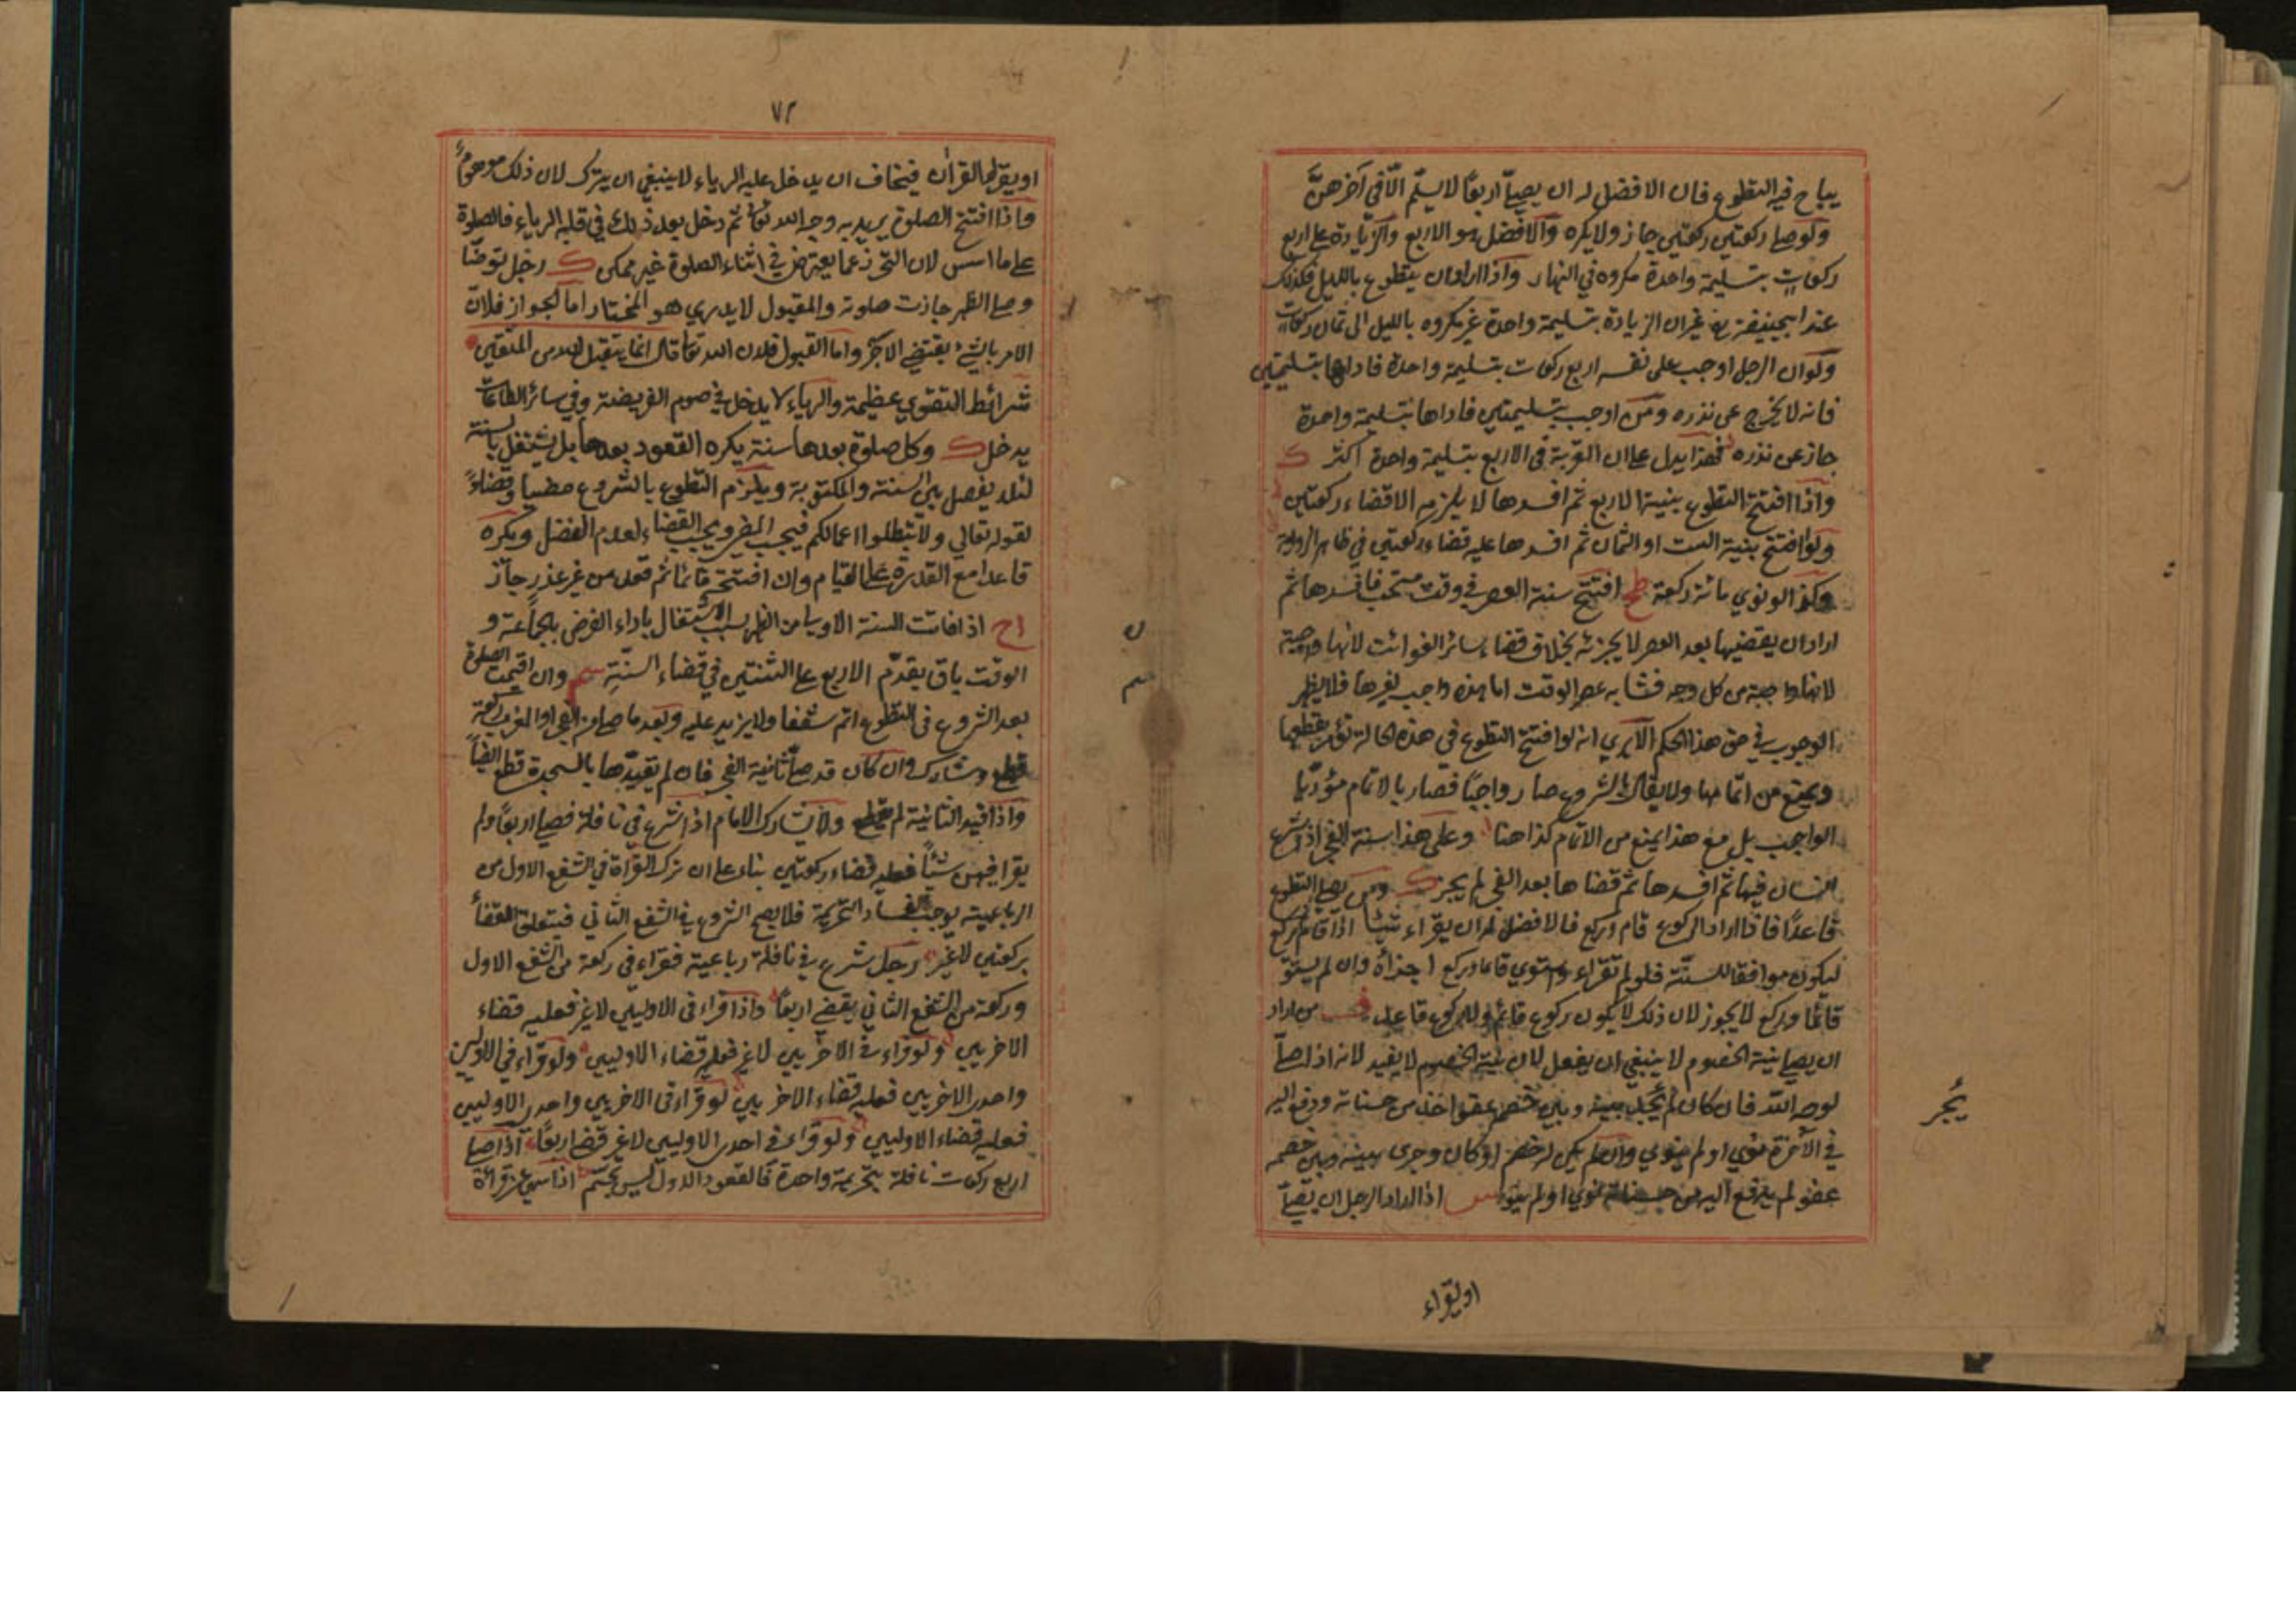 يباح فيه التطوع فان الافضل له ان يصلي اربعًا لا يسلّم الّا في آخرهنّ
ولو صلى ركعتين ركعتين جاز ولا يكره والافضل هو الاربع والزيادة على اربع
ركعاتٍ بتسليمة واحدة مكروه في النهار واذا اراد ان يتطوع بالليل فكذلك
عند ابيحنيفة رح غير ان الزيادة بتسليمة واحدة غير مكروه بالليل الى ثمان ركعات
ولو ان الرجل اوجب على نفسه اربع ركعات بتسليمة واحدة فاداها بتسليمتين
فانه لا يخرج عن نذره ومن اوجب بتسليمتين فاداها بتسليمة واحدة
جاز عن نذره فهذا يدل على ان القربة في الاربع بتسليمة واحدة اكثر ك
واذا افتتح التطوع بنية الاربع ثم افسدها لا يلزمه الا قضاء ركعتين
ولو افتتح بنية الست او الثمان ثم افسدها عليه قضاء ركعتين في ظاهر الرواية
وكذا لو نوي مائة ركعة ظح افتتح سنة العصر في وقت مستحب فافسدها ثم
اراد ان يقضيها بعد العصر لا يجزئه بخلاف قضاء سائر الفوائت لانها واجبة
لانها واجبة من كل وجه فشابه عصر الوقت اما هذه واجب لغيرها فلا يظهر
الوجوب في حق هذا الحكم الا يري انه لو افتتح التطوع في هذه الحالة نؤمر بقطعها
ويمنع من اتمامها ولا يقال بالشروع صار واجبًا فصار بالاتمام مؤديا
الواجب بل مع هذا يمنع من الاتمام كذا هنا وعلى هذا سنة الفجر اذا شرع
انسان فيها ثم افسدها ثم قضاها بعد الفجر لم يجز ك ومن يصلي التطوع
قاعدًا فاذا اراد الركوع قام وركع فالافضل له ان يقراء شيئا اذا قام ثم ركع
ليكون موافقا للسنّة فلو لم تقراء واستوي قائما وركع اجزأه وان لم يستو
قائما وركع لا يجوز لان ذلك لا يكون ركوع قائم ولا ركوع قاعد من اراد
ان يصلي نية الخصوم لا ينبغي ان يفعل لان نية الخصوم لا يفيد لانه اذا صلّى
لوجه اللّه فان كان لم يجد بينه وبين خصم عفو اخذ من حسناته ودفع اليه
في الآخرة نوي او لم ينوي وان لم يكن له خصم او كان وجرى بينه وبين خصمه
عفو لم يدفع اليه من حسناته نوي او لم ينو س اذا اراد الرجل ان يصلّي
يُجر
ن
سم
او يقراء
٧٢
او يقرأ القرآن فيخاف ان يدخل عليه الرياء لا ينبغي ان يترك لان ذلك موهومٌ
واذا افتتح الصلوة يريد به وجه الله تعالى ثم دخل بعد ذلك في قلبه الرياء فالصلوة
على ما اسس لان التحرز عما يعترض في اثناء الصلوة غير ممكن ك رجل توضّا
وصلى الظهر جازت صلوته والمقبول لا يدري هو المختار اما الجواز فلان
الامر بالشئ يقتضي الاجر واما القبول فلان الله تعالى قال انما يتقبل الله من المتقين
شرائط التقوي عظيمة والرياء لا يدخل في صوم الفريضة وفي سائر الطاعات
يدخل ك وكل صلوة بعدها سنة يكره القعود بعدها بل يشتغل بالسنة
لئلا يفصل بين السنة والمكتوبة ويلزم التطوع بالشروع مضيا وقضاءً
لقوله تعالي ولا تبطلوا اعمالكم فيجب المضي ويجب القضاء لعدم الفصل ويكره
قاعدا مع القدرة على القيام وان افتتحه قائما ثم قعد من غير عذر جاز
اح اذا فاتت السنة الاولى من الظهر بسبب الاشتغال باداء الفرض بالجماعة و
الوقت باق يقدّم الاربع على الثنتين في قضاء السنّةِ سم وان اقيمت الصلوة
بعد الشروع في التطوع اتم شفعا ولا يزيد عليه وبعد ما صلى من الفجر او المغرب ركعة
قطع وشارك وان كان قد صلّى ثانية الفجر فان لم يقيدها بالسجدة قطع ايضاً
واذا قيد الثانية لم يقطع ولا يشارك الامام اذا شرع في نافلة فصلى اربعًا ولم
يقرا فيهن شيئاً فعليه قضاء ركعتين بناء على ان ترك القراة في الشفع الاول من
الرباعية يوجب فساد التحريمة فلا يصح الشروع في الشفع الثاني فيتعلق القضأ
بركعتين لا غير رجل شرع في نافلة رباعية فقراء في ركعة من الشفع الاول
وركعة من الشفع الثاني يقضي اربعًا واذا قراء في الاوليين لا غير فعليه قضاء
الاخريين ولو قراء في الاخريين لا غير فعليه قضاء الاوليين ولو قراء في الاوليين
واحدى الاخريين فعليه قضاء الاخريين لو قراء في الاخريين واحدى الاوليين
فعليه قضاء الاوليين ولو قراء في احدى الاوليين لا غير قضى اربعًا اذا صلى
اربع ركعات نافلة بتحريمة واحدة فالقعود الاول ليس بحتم اذا سهى عن قراءة